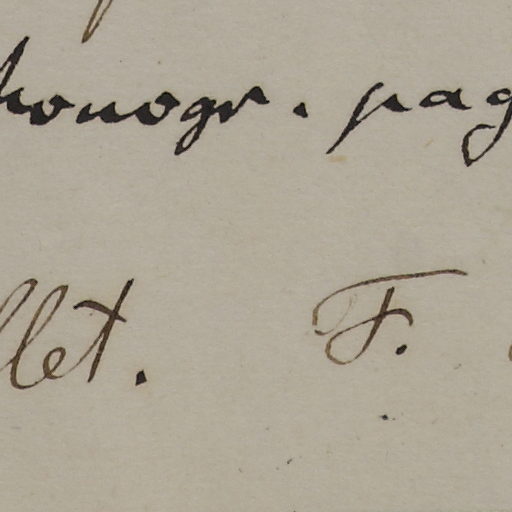 monogr. pag
llet. F.